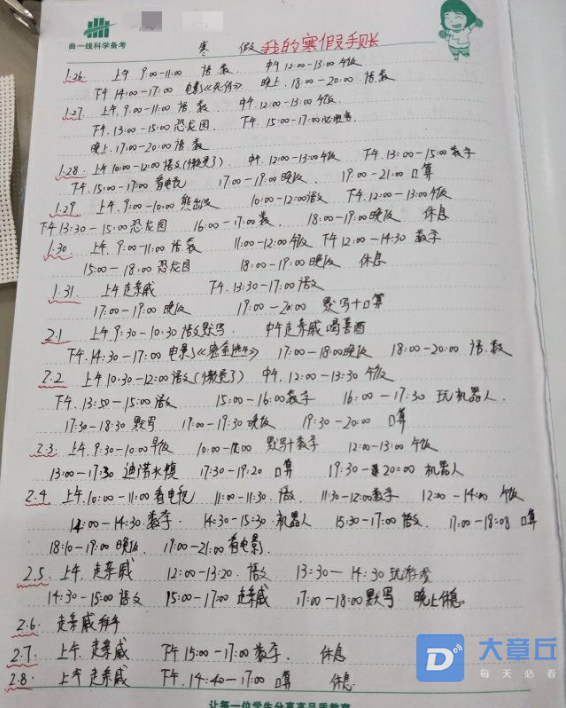 曲一线科学备考
寒 假 我的寒假手账
1.26. 上午 9:00-11:00 语.数. 中午 12:00-13:00 午饭
下午 14:00-17:00 电影《 》 晚上.18:00-20:00 语.数
1.27. 上午.9:00-11:00 语.数 中午.12:00-13:00 午饭.
下午.13:00-15:00 恐龙园. 下午.15:00-17:00
晚上.17:00-20:00 语.数
1.28. 上午10:00-12:00 语文(懒觉了) 中午.12:00-13:00 午饭 下午.13:00-15:00 数学
下午.15:00-17:00 看电视 17:00-19:00 晚饭 19:00-21:00 口算
1.29 上午.9:00-10:00 熊出没 10:00-12:00 语文 下午.12:00-13:00 午饭
下午13:30-15:00 恐龙园 16:00-17:00 数. 18:00-19:00 晚饭 休息
1.30 上午.9:00-11:00 语.数 11:00-12:00 午饭 下午12:00-14:30 数学
15:00-18:00 恐龙园 18:00-19:00 晚饭 休息
1.31. 上午走亲戚 下午.13:30-17:00 语文
17:00-19:00 晚饭 19:00-20:00 默写+口算
2.1 上午.9:30-10:30 语文默写. 中午走亲戚 喝喜酒
下午.14:30-17:00 电影《 》 17:00-18:00 晚饭 18:00-20:00 语.数
2.2 上午10:30-12:00 语文(懒觉了) 中午.12:00-13:30 午饭
下午.13:50-15:00 语文 15:00-16:00 数学 16:00-17:30 玩机器人.
17:30-18:30 默写 17:00-19:30 晚饭 19:30-20:00 口算
2.3 上午.9:30-10:00 早饭 10:00- 默写+数学 12:00-13:00 午饭
13:00-17:30 迪诺水镇 17:30-19:20 口算 19:30-20:00 机器人
2.4 上午.10:00-11:00 看电视 11:00-11:30. 语文 11:30-12:00 数学 12:00-14:00 午饭
14:00-14:30 数学. 14:30-15:30 机器人 15:30-17:00 语文. 17:00-18:08 口算
18:10-19:00 晚饭. 19:00-21:00 看电影.
2.5 上午.走亲戚 12:00-13:20. 语文 13:30-14:30 玩游戏
14:30-15:00 语文 15:00-17:00 走亲戚 17:00-18:00 默写 晚上休息.
2.6. 走亲戚
2.7 上午.走亲戚 下午15:00-17:00 数学. 休息
2.8 上午 走亲戚 下午.14:40-17:00 口算 休息.
大章丘
每天必看
让每一位学生分享高品质教育